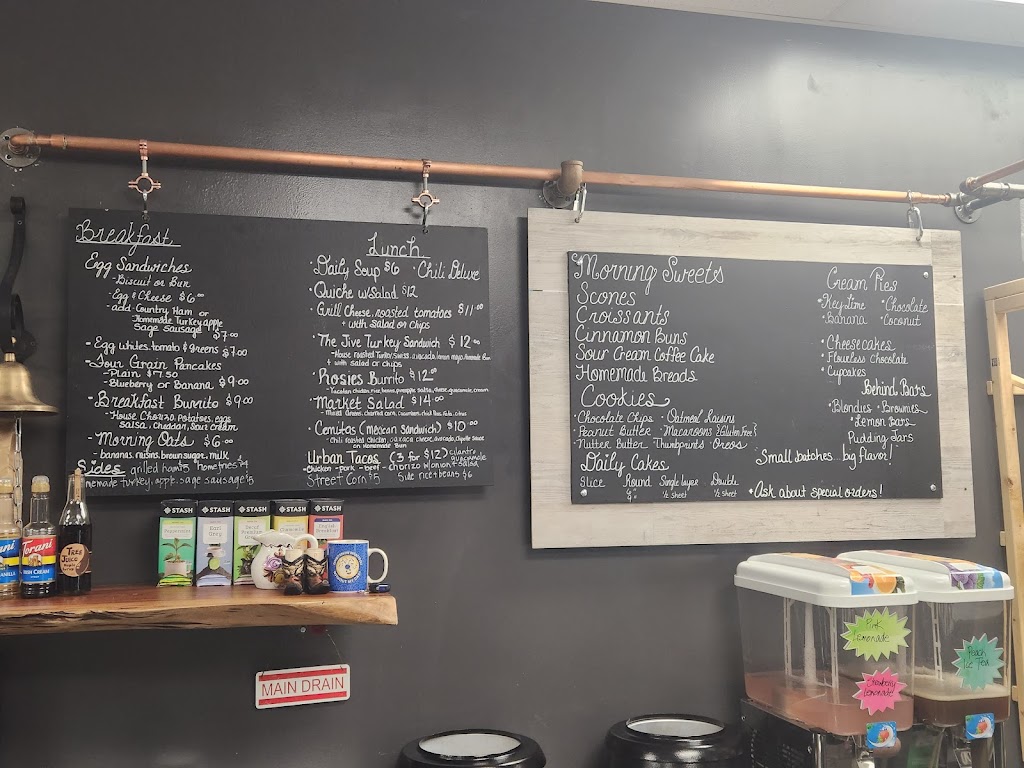 Breakfast
Egg Sandwiches
- Biscuit or Bun
- Egg & Cheese $6.00
- add Country Ham or
Homemade Turkey apple
Sage sausage $7.00
- Egg whites, tomato & greens $7.00
- Four Grain Pancakes
- Plain $7.50
- Blueberry or Banana $9.00
- Breakfast Burrito $9.00
- House Chorizo, potatoes, eggs
salsa, cheddar, sour cream
- Morning Oats $6.00
bananas, raisins, brown sugar, milk
Sides grilled ham $5 home fries $4
homemade turkey, apple, sage sausage $5
Lunch
Daily Soup $6 · Chili Deluxe
· Quiche w/Salad $12
· Grill Cheese, roasted tomatoes $11.00
+ with salad or chips
· The Jive Turkey Sandwich $12.00
- House roasted Turkey, swiss, avocado, lemon mayo, Homemade Bun
+ with salad or chips
· Rosies Burrito $12.00
chicken, rice, beans, pineapple salsa, cheese, guacamole, cream
· Market Salad $14.00
- Mixed Greens, charred corn, cucumbers,
· Cemitas (mexican sandwich) $10.00
- Chili roasted chicken, oaxaca cheese, avocado, chipotle sauce
on Homemade Bun
Urban Tacos (3 for $12) cilantro
guacamole
- chicken - pork - beef - chorizo w/onion + salsa
Street Corn $5 Side rice + beans $6
Morning Sweets
Scones
Croissants
Cinnamon Buns
Sour Cream Coffee Cake
Homemade Breads
Cookies
· Chocolate Chips · Oatmeal Raisins
· Peanut Butter · Macaroons {Gluten Free}
· Nutter Butter Thumbprints Oreos
Daily Cakes
Slice Round Single layer Double
½ sheet ½ sheet
Cream Pies
· Key-time · Chocolate
· Banana · Coconut
· Cheesecakes
· Flourless Chocolate
· Cupcakes
Behind Bars
· Blondies · Brownies
· Lemon Bars
Pudding Jars
Small batches... big flavor!
· Ask about special orders!
STASH
STASH
STASH
STASH
STASH
Peppermint
Earl Grey
Torani
MAIN DRAIN
Pink Lemonade
Strawberry Lemonade
Peach Ice Tea